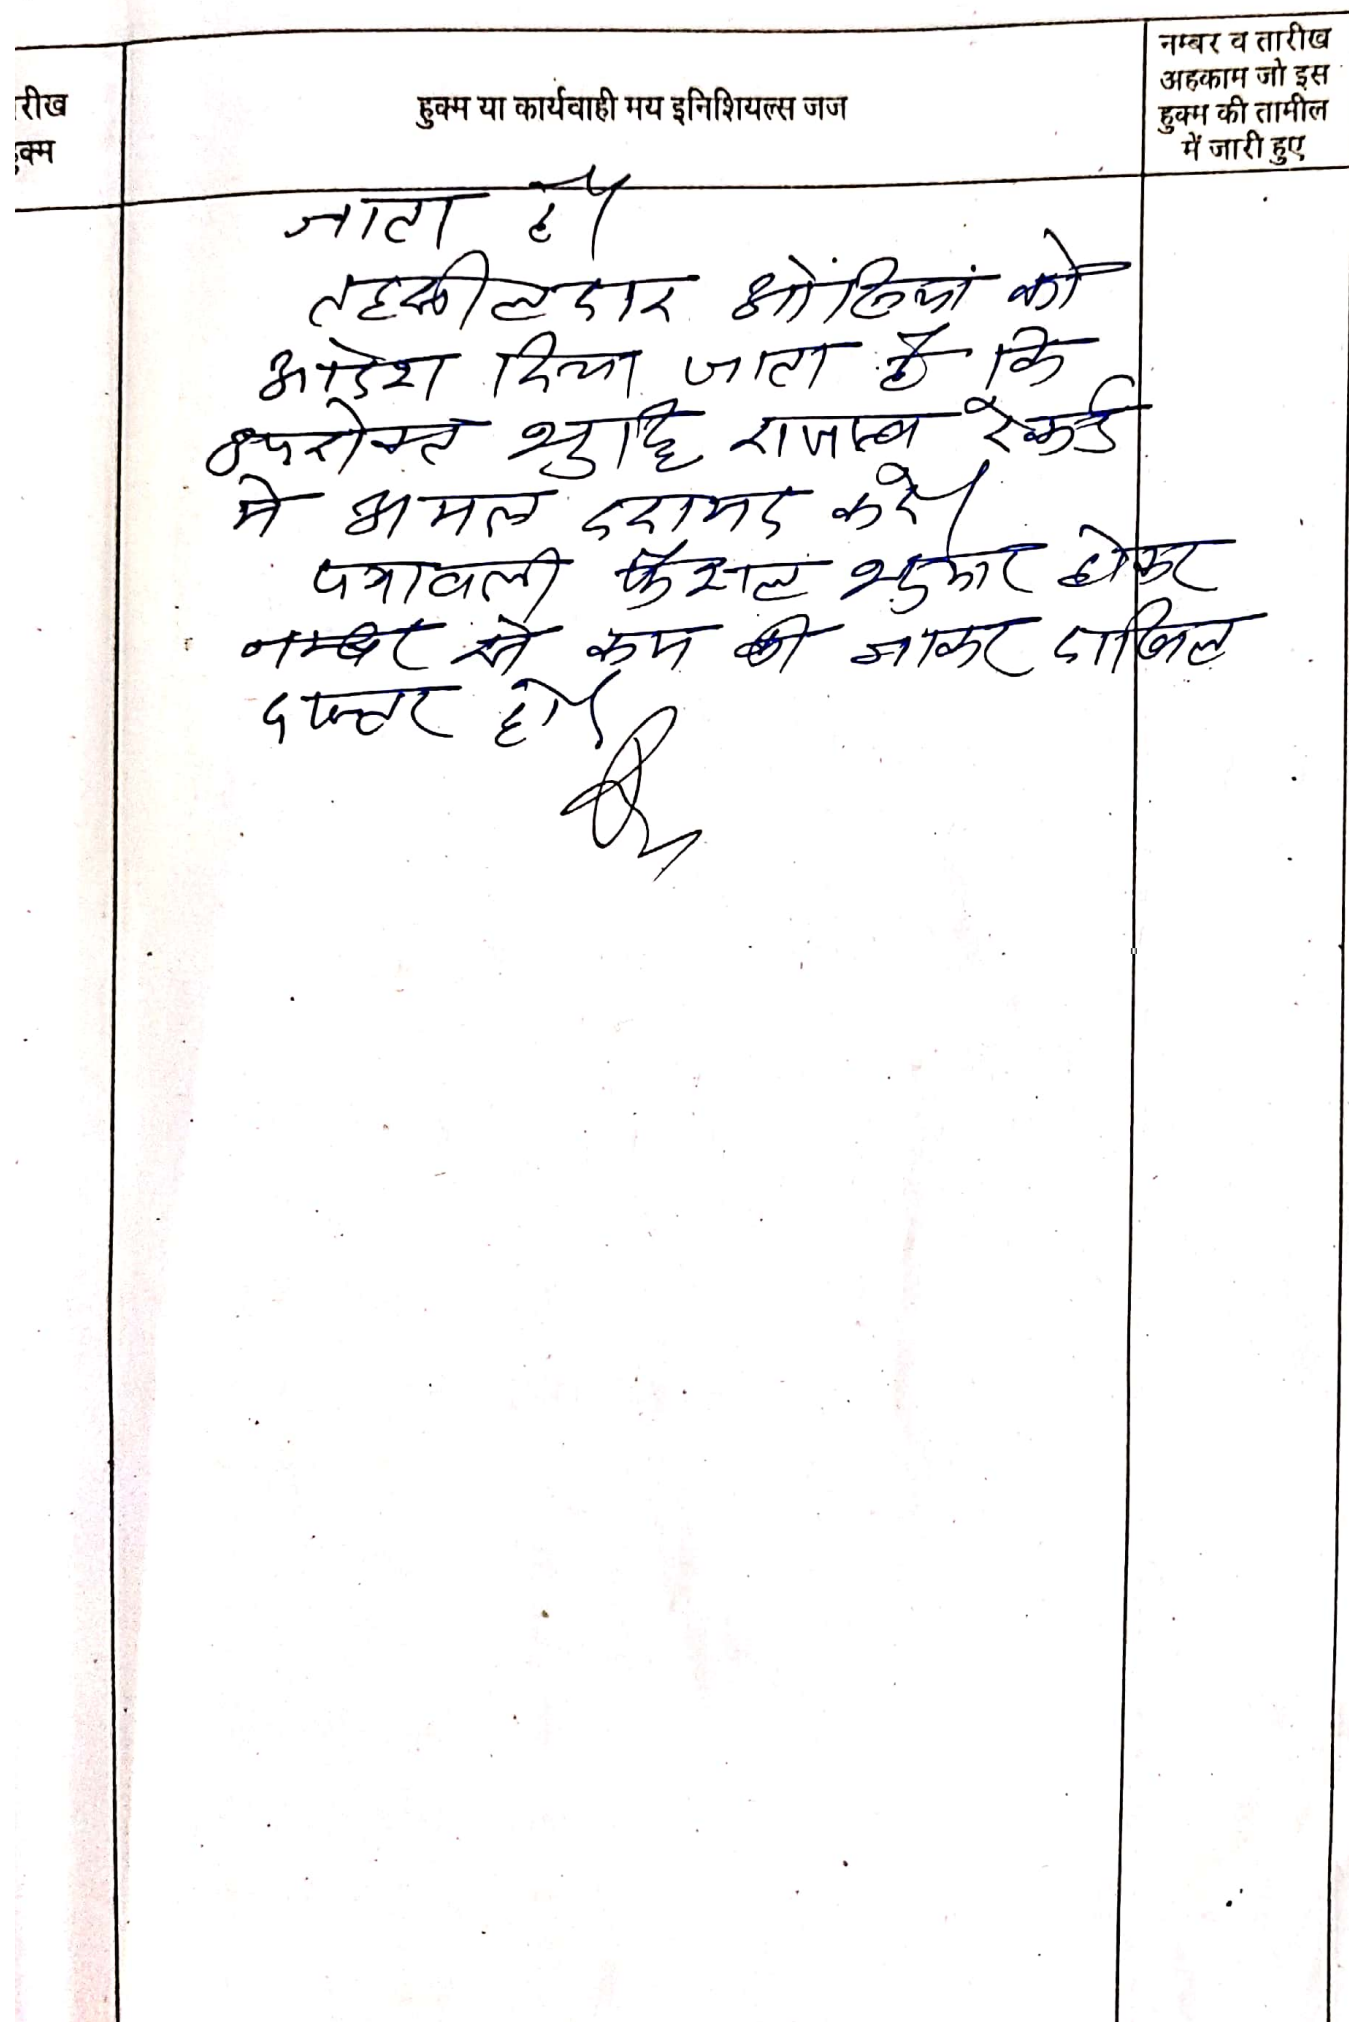 रीख
क्म
हुक्म या कार्यवाही मय इनिशियल्स जज
नम्बर व तारीख
अहकाम जो इस
हुक्म की तामील
में जारी हुए
जाता है।
तहसीलदार को
आदेश दिया जाता है कि
उपरोक्त शुद्धि राजस्व रेकर्ड
मे अमल दरामद करे।
पत्रावली फैसल शुमार होकर
नम्बर से कम की जाकर दाखिल
दफ्तर हो।